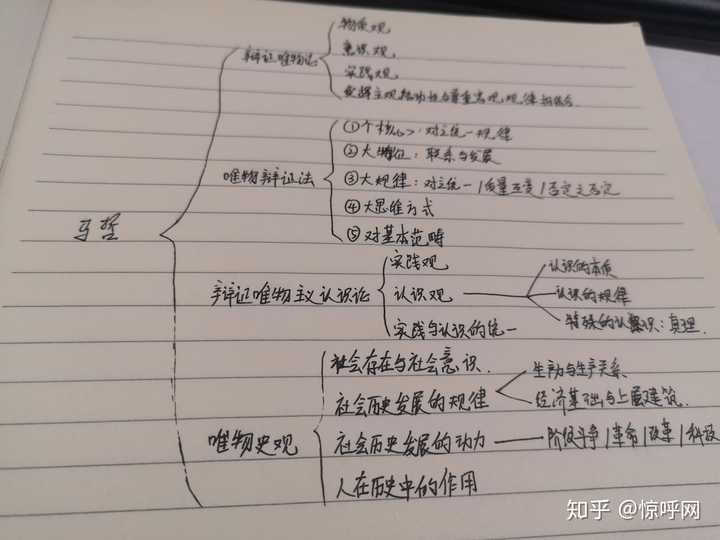 马哲
辩证唯物论
物质观
意识观
实践观
发挥主观能动性与尊重客观规律相结合
唯物辩证法
①个核心:对立统一规律
②大特征:联系与发展
③大规律:对立统一/质量互变/否定之否定
④大思维方式
⑤对基本范畴
辩证唯物主义认识论
实践观
认识观
认识的本质
认识的规律
特殊的认识:真理
实践与认识的统一
唯物史观
社会存在与社会意识
社会历史发展的规律
生产力与生产关系
经济基础与上层建筑
社会历史发展的动力
阶级斗争/革命/改革/科技
人在历史中的作用
知乎 @惊呼网